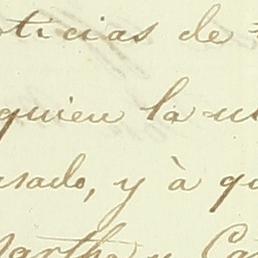 oticias de
quien la us
asado, y à qu
Martha y Ca